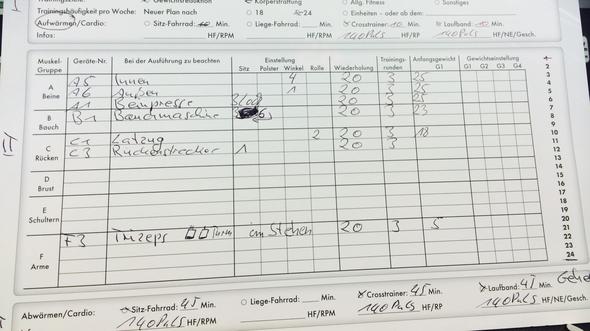 Trainingshäufigkeit pro Woche: Neuer Plan nach ○ 18 ○ 24 ○ Einheiten – oder ab dem:
Aufwärmen/Cardio: ○ Sitz-Fahrrad: 10 Min. ○ Liege-Fahrrad: Min. Crosstrainer: 10 Min. Laufband: 10 Min.
Infos: HF/RPM HF/RPM 140 Puls HF/RP 140 Puls HF/NE/Gesch.
Muskel-Gruppe Geräte-Nr. Bei der Ausführung zu beachten Einstellung Wiederholung Trainings-runden Anfangsgewicht Gewichtseinstellung
Sitz Polster Winkel Rolle G1 G1 G2 G3 G4
A Beine
A5 Innen 4 20 3 25
A6 Außen 1 20 3 25
A1 Beinpresse 20 3
B Bauch
B1 Bauchmaschine 6 20 3 23
C Rücken
C1 Latzug 2 20 3 18
C3 Rückenstrecker 1 20 3
D Brust
E Schultern
F Arme
F3 Trizeps im Stehen 20 3 5
2
3
4
5
6
7
8
9
10
11
12
13
14
15
16
17
18
19
20
21
22
23
24
II
Abwärmen/Cardio: Sitz-Fahrrad: 45 Min. ○ Liege-Fahrrad: Min. Crosstrainer: 45 Min. Laufband: 45 Min.
140 Puls HF/RPM HF/RPM 140 Puls HF/RP 140 Puls HF/NE/Gesch.